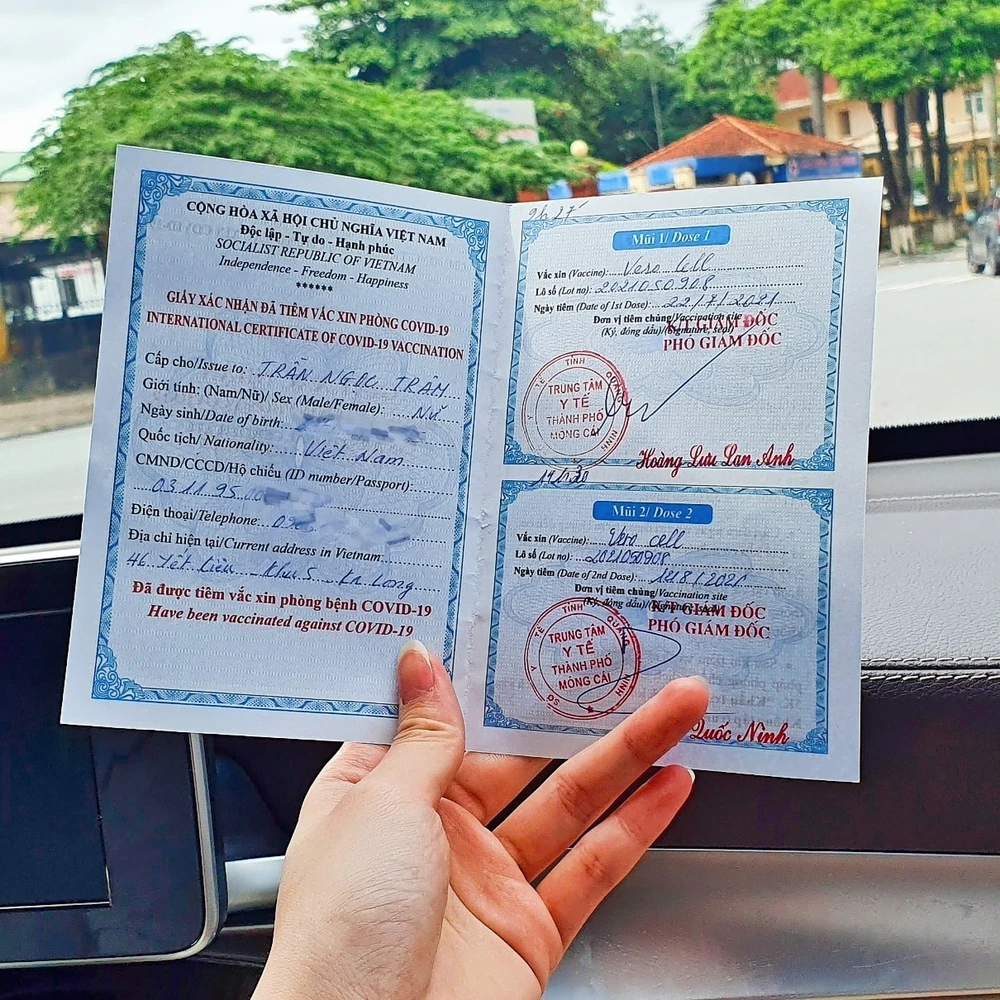 CỘNG HÒA XÃ HỘI CHỦ NGHĨA VIỆT NAM
Độc lập - Tự do - Hạnh phúc
SOCIALIST REPUBLIC OF VIETNAM
Independence - Freedom - Happiness
******
GIẤY XÁC NHẬN ĐÃ TIÊM VẮC XIN PHÒNG COVID-19
INTERNATIONAL CERTIFICATE OF COVID-19 VACCINATION
Cấp cho/Issue to: TRẦN NGỌC TRÂM
Giới tính: (Nam/Nữ)/ Sex (Male/Female): Nữ
Ngày sinh/Date of birth:
Quốc tịch/ Nationality: Việt Nam
CMND/CCCD/Hộ chiếu (ID number/Passport):
031195
Điện thoại/Telephone:
Địa chỉ hiện tại/Current address in Vietnam:
46 Yết Kiêu Khu 5 Ka Long
Đã được tiêm vắc xin phòng bệnh COVID-19
Have been vaccinated against COVID-19
9h 27
Mũi 1/ Dose 1
Vắc xin (Vaccine): Vero Cell
Lô số (Lot no): 2021050908
Ngày tiêm (Date of 1st Dose): 22/7/2021
Đơn vị tiêm chủng/Vaccination site
(Ký, đóng dấu)/(Signature, seal)
KT GIÁM ĐỐC
PHÓ GIÁM ĐỐC
SỞ Y TẾ TỈNH QUẢNG NINH
TRUNG TÂM
Y TẾ
THÀNH PHỐ
MÓNG CÁI
Hoàng Lưu Lan Anh
14h30
Mũi 2/ Dose 2
Vắc xin (Vaccine): Vero cell
Lô số (Lot no): 2021050908
Ngày tiêm (Date of 2nd Dose): 14/8/2021
Đơn vị tiêm chủng/Vaccination site
(Ký, đóng dấu)/(Signature, seal)
KT GIÁM ĐỐC
PHÓ GIÁM ĐỐC
SỞ Y TẾ TỈNH QUẢNG NINH
TRUNG TÂM
Y TẾ
THÀNH PHỐ
MÓNG CÁI
Quốc Ninh